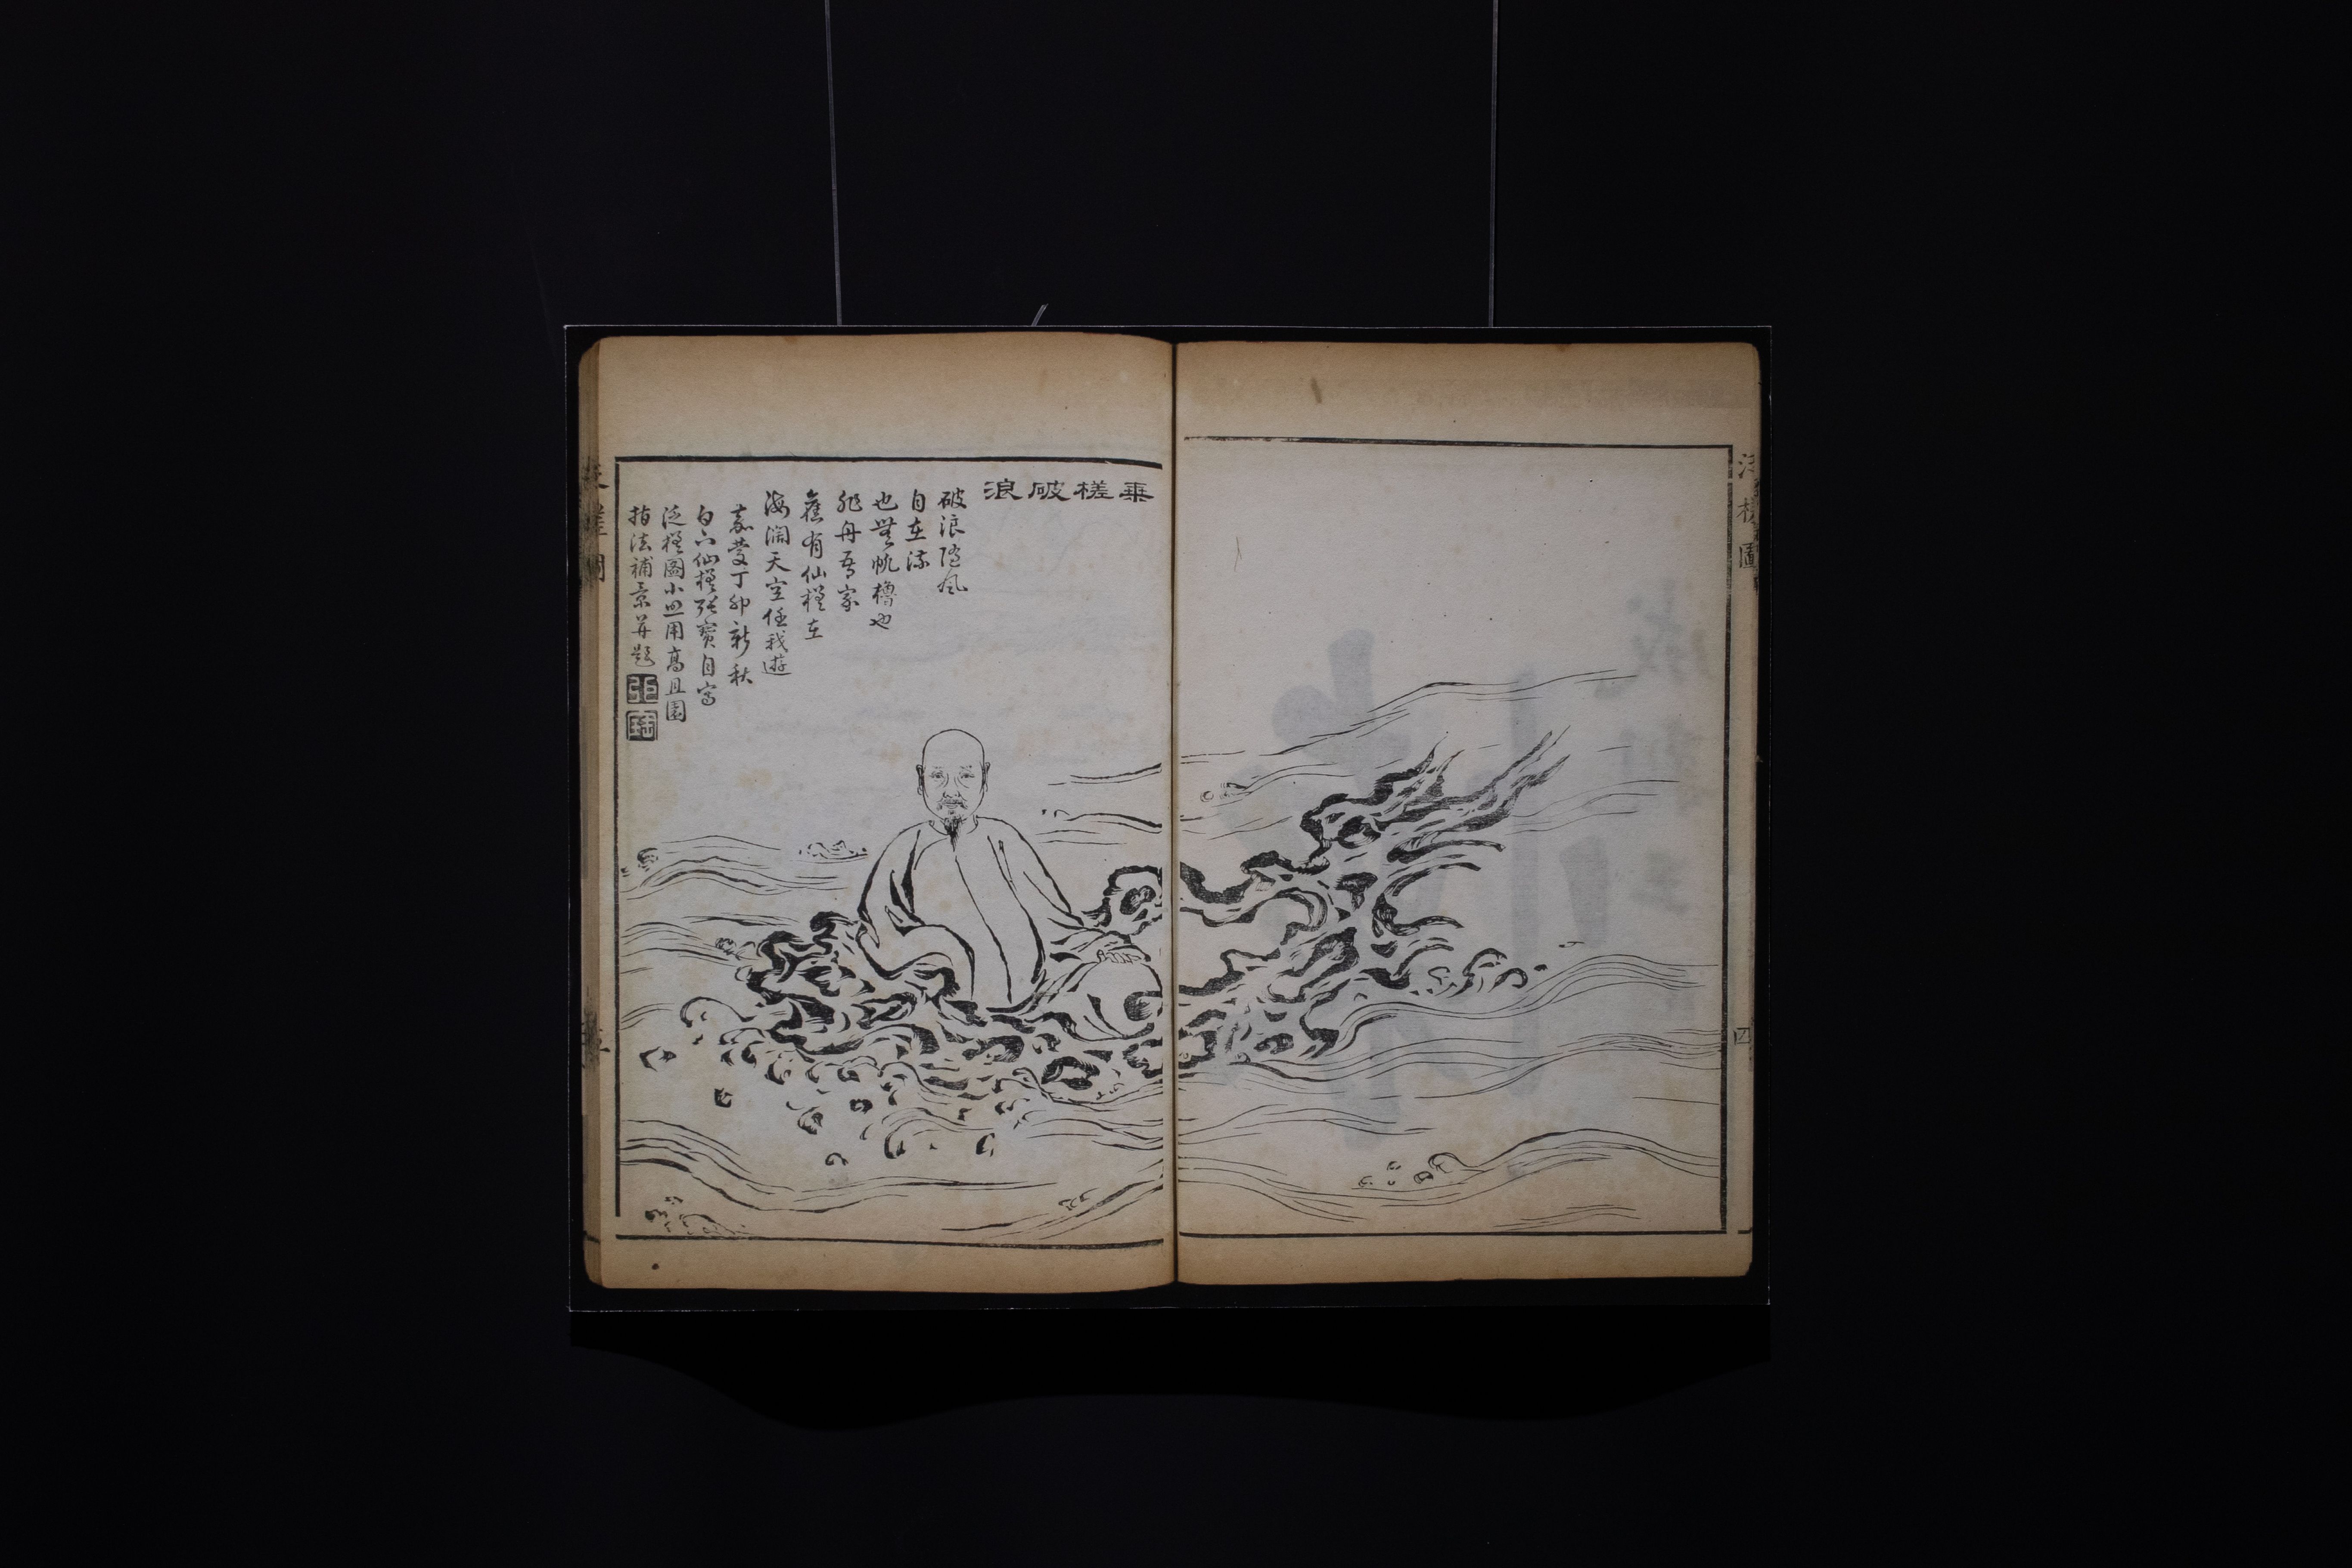 乘槎破浪
破浪随風
自在流
也無帆櫓也
非舟吾家
舊有仙槎在
海濶天空任我遊
嘉慶丁卯新秋
白下仙槎張寶自寫
泛槎圖小照用高且園
指法補景并題
張
寶
泛槎圖
四